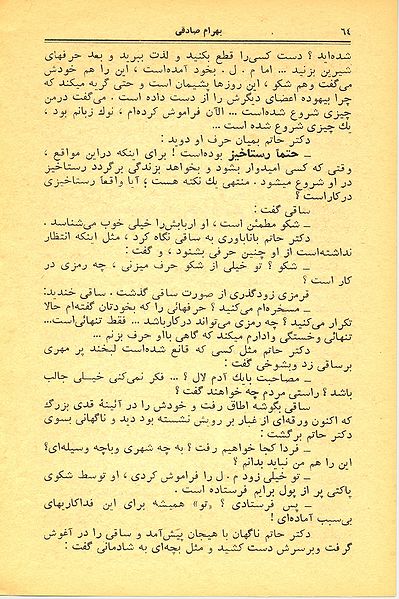 ٦٤ بهرام صادقی
شده‌اید ؟ دست کسی‌را قطع بکنید و لذت ببرید و بعد حرفهای
شیرین بزنید ... اما م . ل . بخود آمده‌است ، این را هم خودش
می‌گفت وهم شکو ، این روزها پشیمان است و حتی گریه میکند که
چرا بیهوده اعضای دیگرش را از دست داده است . می‌گفت درمن
چیزی شروع شده‌است ... الآن فراموش کرده‌ام ، نوك زبانم بود ،
یك چیزی شروع شده است ...
دکتر حاتم بمیان حرف او دوید :
ـ حتماً رستاخیز بوده‌است ! برای اینکه دراین مواقع ،
وقتی که کسی امیدوار بشود و بخواهد بزندگی برگردد رستاخیز
در او شروع میشود . منتهی یك نکته هست ؛ آیا واقعاً رستاخیزی
درکاراست ؟
ساقی گفت :
ـ شکو مطمئن است ، او اربابش‌را خیلی خوب می‌شناسد .
دکتر حاتم باناباوری به ساقی نگاه کرد ، مثل اینکه انتظار
نداشته‌است از او چنین حرفی بشنود ، و گفت :
ـ شکو ؟ تو خیلی از شکو حرف میزنی ، چه رمزی در
کار است ؟
قرمزی زودگذری از صورت ساقی گذشت . ساقی خندید:
ـ مسخره‌ام می‌کنید ؟ حرفهائی را که بخودتان گفته‌ام حالا
تکرار می‌کنید ؟ چه رمزی می‌تواند درکارباشد ... فقط تنهائی‌است...
تنهائی وخستگی وادارم میکند که گاهی بااو حرف بزنم ...
دکتر حاتم مثل کسی که قانع شده‌است لبخند پر مهری
برساقی زد وبشوخی گفت :
ـ مصاحبت بایك آدم لال ؟ ... فکر نمی‌کنی خیلی جالب
باشد ؟ راستی مردم چه خواهند گفت ؟
ساقی بگوشه اطاق رفت و خودش را در آئینهٔ قدی بزرگ
که اکنون ورقه‌ای از غبار بر رویش نشسته بود دید و ناگهانی بسوی
دکتر حاتم برگشت :
ـ فردا کجا خواهیم رفت ؟ به چه شهری وباچه وسیله‌ای؟
این را هم من نباید بدانم ؟
ـ تو خیلی زود م . ل را فراموش کردی ، او توسط شکوی
پاکتی پر از پول برایم فرستاده است .
ـ پس فرستادی ؟ «تو» همیشه برای این فداکاریهای
بی‌سبب آماده‌ای !
دکتر حاتم ناگهان با هیجان پیش‌آمد و ساقی را در آغوش
گرفت وبرسرش دست کشید و مثل بچه‌ای به شادمانی گفت :